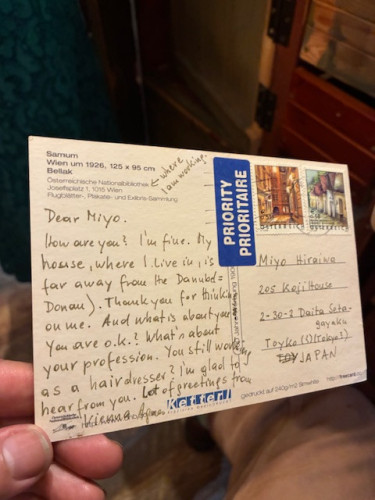 Samum
Wien um 1926, 125 x 95 cm
Bellak
Österreichische Nationalbibliothek
Josefsplatz 1, 1015 Wien
Flugblätter-, Plakate- und Exlibris-Sammlung
← where
I am working.
PRIORITY
PRIORITAIRE
Dear Miyo.
How are you? I'm fine. My
house, where I live in, is
far away from the Danube(=
Donau). Thank you for thinking
on me. And what is about you
You are o.k.? What's about
your profession. You still working
as a hairdresser? I'm glad to
hear from you. Lot of greetings from
Vienna
Miyo Hiraiwa
205 Koji House
2-30-2 Daita Seta-
gayaku
JAPAN
gedruckt auf 240g/m2
http://